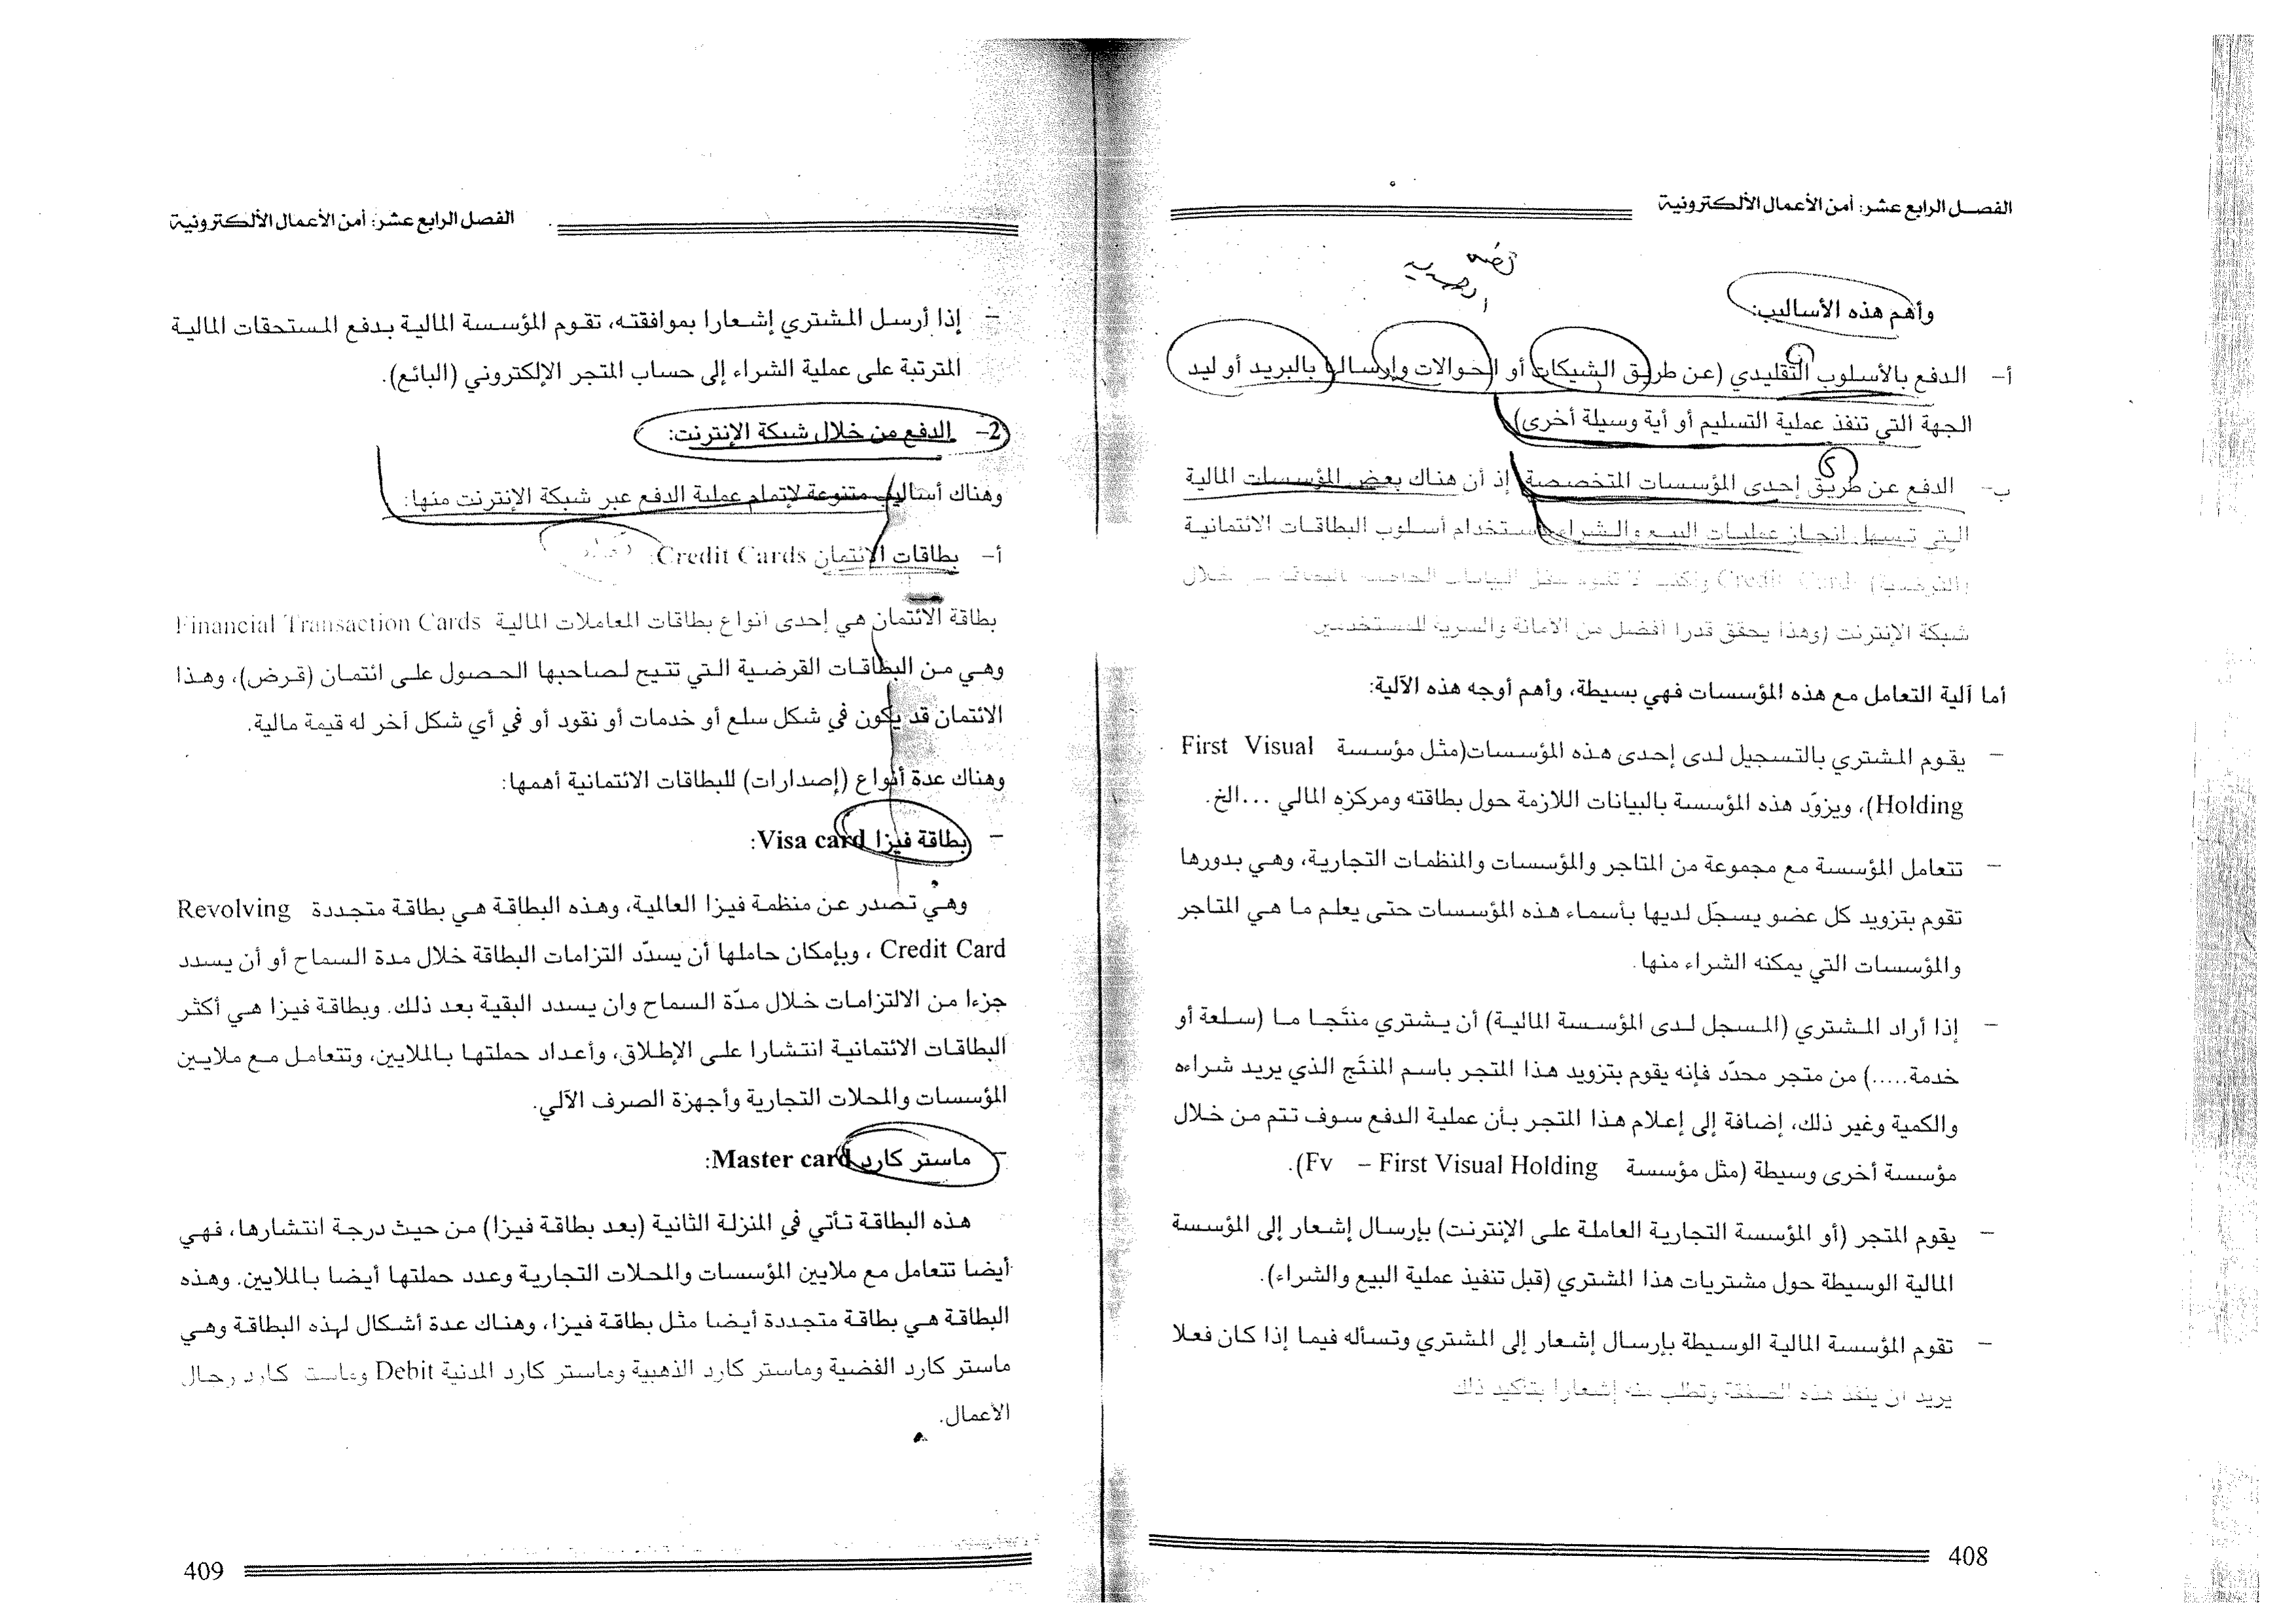 الفصل الرابع عشر: أمن الأعمال الألكترونية
وأهم هذه الأساليب:
أ- الدفع بالأسلوب التقليدي (عن طريق الشيكات أو الحوالات وإرسالها بالبريد أو ليد
الجهة التي تنفذ عملية التسليم أو أية وسيلة أخرى)
ب- الدفع عن طريق إحدى المؤسسات المتخصصة إذ أن هناك بعض المؤسسات المالية
التي تسهل إنجاز عمليات البيع والشراء باستخدام أسلوب البطاقات الائتمانية
(القرضية) Credit Card ولكنه لا تقوم بنقل البيانات الخاصة بالبطاقة من خلال
شبكة الإنترنت (وهذا يحقق قدرا أفضل من الأمانة والسرية للمستخدمين.
أما آلية التعامل مع هذه المؤسسات فهي بسيطة، وأهم أوجه هذه الآلية:
– يقوم المشتري بالتسجيل لدى إحدى هذه المؤسسات(مثل مؤسسة First Visual
Holding)، ويزوّد هذه المؤسسة بالبيانات اللازمة حول بطاقته ومركزه المالي ...الخ.
– تتعامل المؤسسة مع مجموعة من المتاجر والمؤسسات والمنظمات التجارية، وهي بدورها
تقوم بتزويد كل عضو يسجّل لديها بأسماء هذه المؤسسات حتى يعلم ما هي المتاجر
والمؤسسات التي يمكنه الشراء منها.
– إذا أراد المشتري (المسجل لدى المؤسسة المالية) أن يشتري منتَجا ما (سلعة أو
خدمة.....) من متجر محدّد فإنه يقوم بتزويد هذا المتجر باسم المنتَج الذي يريد شراءه
والكمية وغير ذلك، إضافة إلى إعلام هذا المتجر بأن عملية الدفع سوف تتم من خلال
مؤسسة أخرى وسيطة (مثل مؤسسة Fv – First Visual Holding).
– يقوم المتجر (أو المؤسسة التجارية العاملة على الإنترنت) بإرسال إشعار إلى المؤسسة
المالية الوسيطة حول مشتريات هذا المشتري (قبل تنفيذ عملية البيع والشراء).
– تقوم المؤسسة المالية الوسيطة بإرسال إشعار إلى المشتري وتسأله فيما إذا كان فعلا
يريد أن ينفذ هذه الصفقة وتطلب منه إشعارا بتأكيد ذلك
408
الفصل الرابع عشر: أمن الأعمال الألكترونية
– إذا أرسل المشتري إشعارا بموافقته، تقوم المؤسسة المالية بدفع المستحقات المالية
المترتبة على عملية الشراء إلى حساب المتجر الإلكتروني (البائع).
2- الدفع من خلال شبكة الإنترنت:
وهناك أساليب متنوعة لإتمام عملية الدفع عبر شبكة الإنترنت منها:
أ- بطاقات الائتمان Credit Cards:
بطاقة الائتمان هي إحدى أنواع بطاقات المعاملات المالية Financial Transaction Cards
وهي من البطاقات القرضية التي تتيح لصاحبها الحصول على ائتمان (قرض)، وهذا
الائتمان قد يكون في شكل سلع أو خدمات أو نقود أو في أي شكل آخر له قيمة مالية.
وهناك عدة أنواع (إصدارات) للبطاقات الائتمانية أهمها:
– بطاقة فيزا Visa card:
وهي تصدر عن منظمة فيزا العالمية، وهذه البطاقة هي بطاقة متجددة Revolving
Credit Card ، وبإمكان حاملها أن يسدّد التزامات البطاقة خلال مدة السماح أو أن يسدد
جزءا من الالتزامات خلال مدّة السماح وان يسدد البقية بعد ذلك. وبطاقة فيزا هي أكثر
البطاقات الائتمانية انتشارا على الإطلاق، وأعداد حملتها بالملايين، وتتعامل مع ملايين
المؤسسات والمحلات التجارية وأجهزة الصرف الآلي.
– ماستر كارد Master card:
هذه البطاقة تأتي في المنزلة الثانية (بعد بطاقة فيزا) من حيث درجة انتشارها، فهي
أيضا تتعامل مع ملايين المؤسسات والمحلات التجارية وعدد حملتها أيضا بالملايين. وهذه
البطاقة هي بطاقة متجددة أيضا مثل بطاقة فيزا، وهناك عدة أشكال لهذه البطاقة وهي
ماستر كارد الفضية وماستر كارد الذهبية وماستر كارد المدنية Debit وماستر كارد رجال
الأعمال.
409